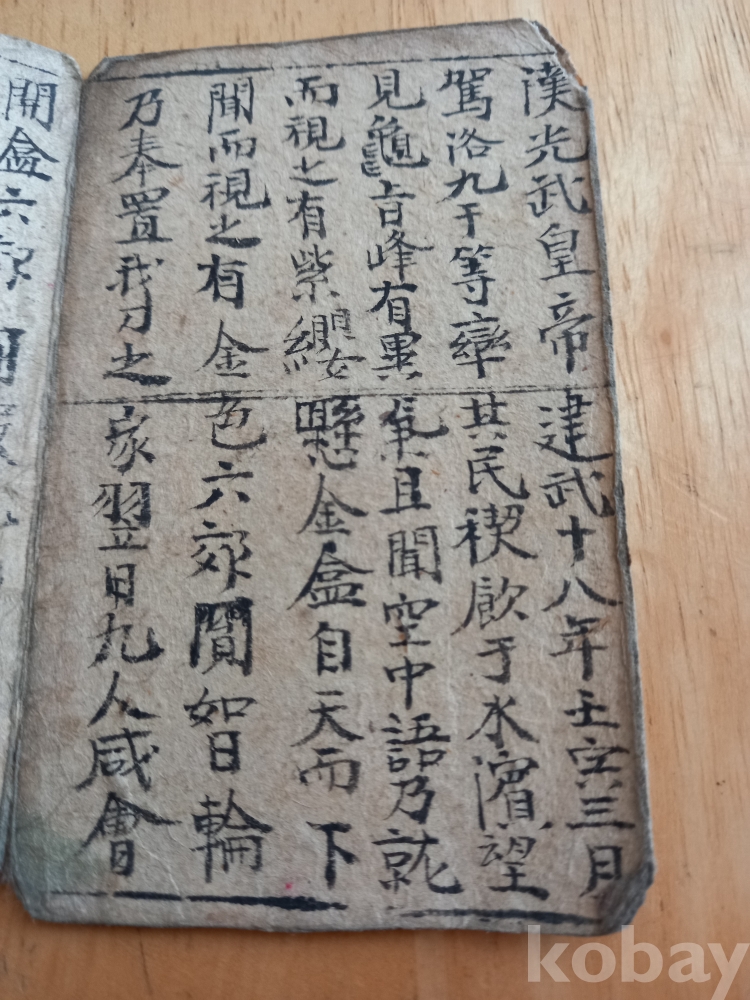 漢光武皇帝建武十八年壬寅三月
駕洛九干等率其民禊飮于水濱望
見龜旨峰有異氣且聞空中語乃就
而視之有紫纓懸金盒自天而下
開而視之有金色六卵圓如日輪
乃奉置我刀之家翌日九人咸會
開盒六卵
kobay